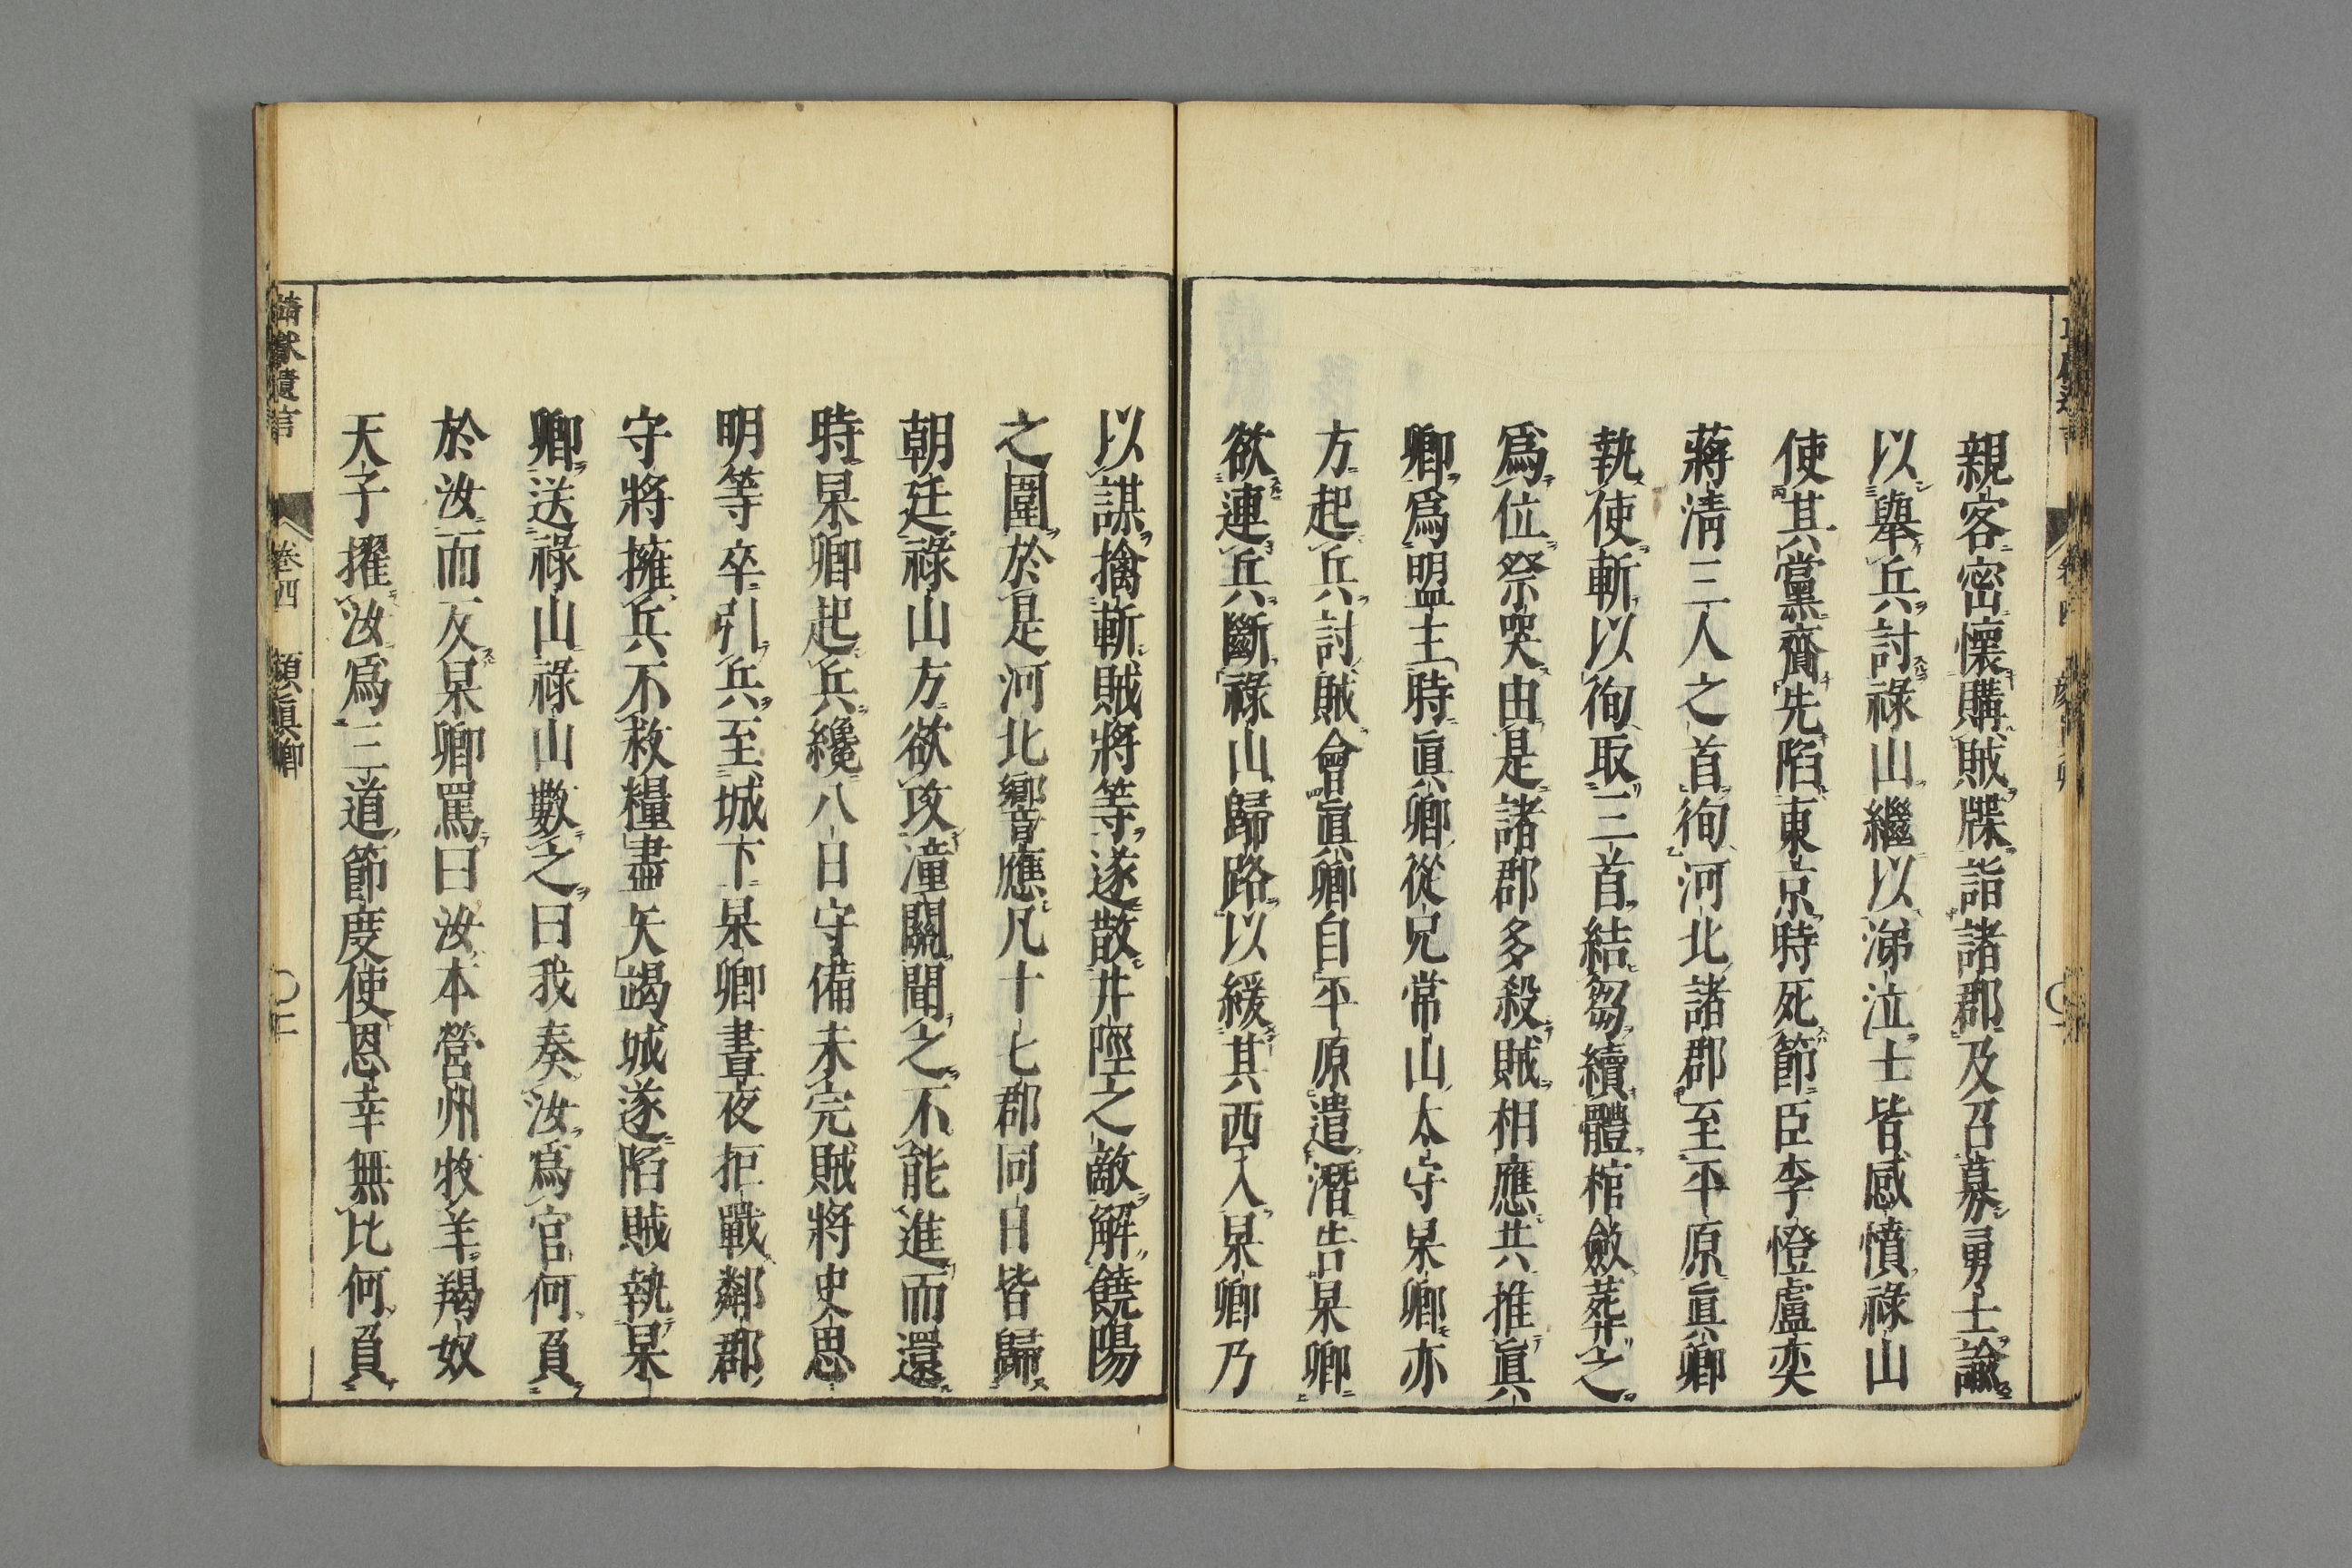 親客密懷購賊牒詣諸郡及召募勇士諭
以擧兵討祿山繼以涕泣士皆感憤祿山
使其黨齎先陷東京時死節臣李憕盧奕
蔣淸三人之首徇河北諸郡至平原眞卿
執使斬以徇取三首結芻續體棺斂葬之
爲位祭哭由是諸郡多殺賊相應共推眞
卿爲盟主時眞卿從兄常山太守杲卿亦
方起兵討賊會眞卿自平原遣潛告杲卿
欲連兵斷祿山歸路以緩其西入杲卿乃
以謀擒斬賊將等遂散井陘之敵解饒陽
之圍於是河北響應凡十七郡同日皆歸
朝廷祿山方欲攻潼關聞之不能進而還
時杲卿起兵纔八日守備未完賊將史思
明等卒引兵至城下杲卿晝夜拒戰鄰郡
守將擁兵不救糧盡矢竭城遂陷賊執杲
卿送祿山祿山數之曰我奏汝爲官何負
於汝而反杲卿罵曰汝本營州牧羊羯奴
天子擢汝爲三道節度使恩幸無比何負
靖獻遺言 卷四 顏眞卿 〇二